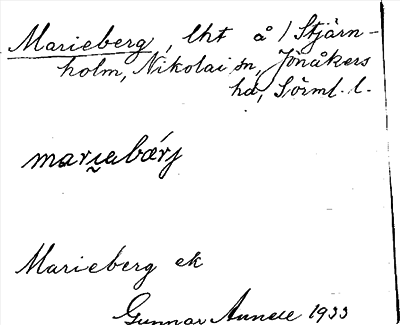 Marieberg, lht å / Stjärn-
holm, Nikolai sn, Jönåkers
hd, Sörml. l.
mari̯abǽrj
Marieberg ek
Gunnar 1933